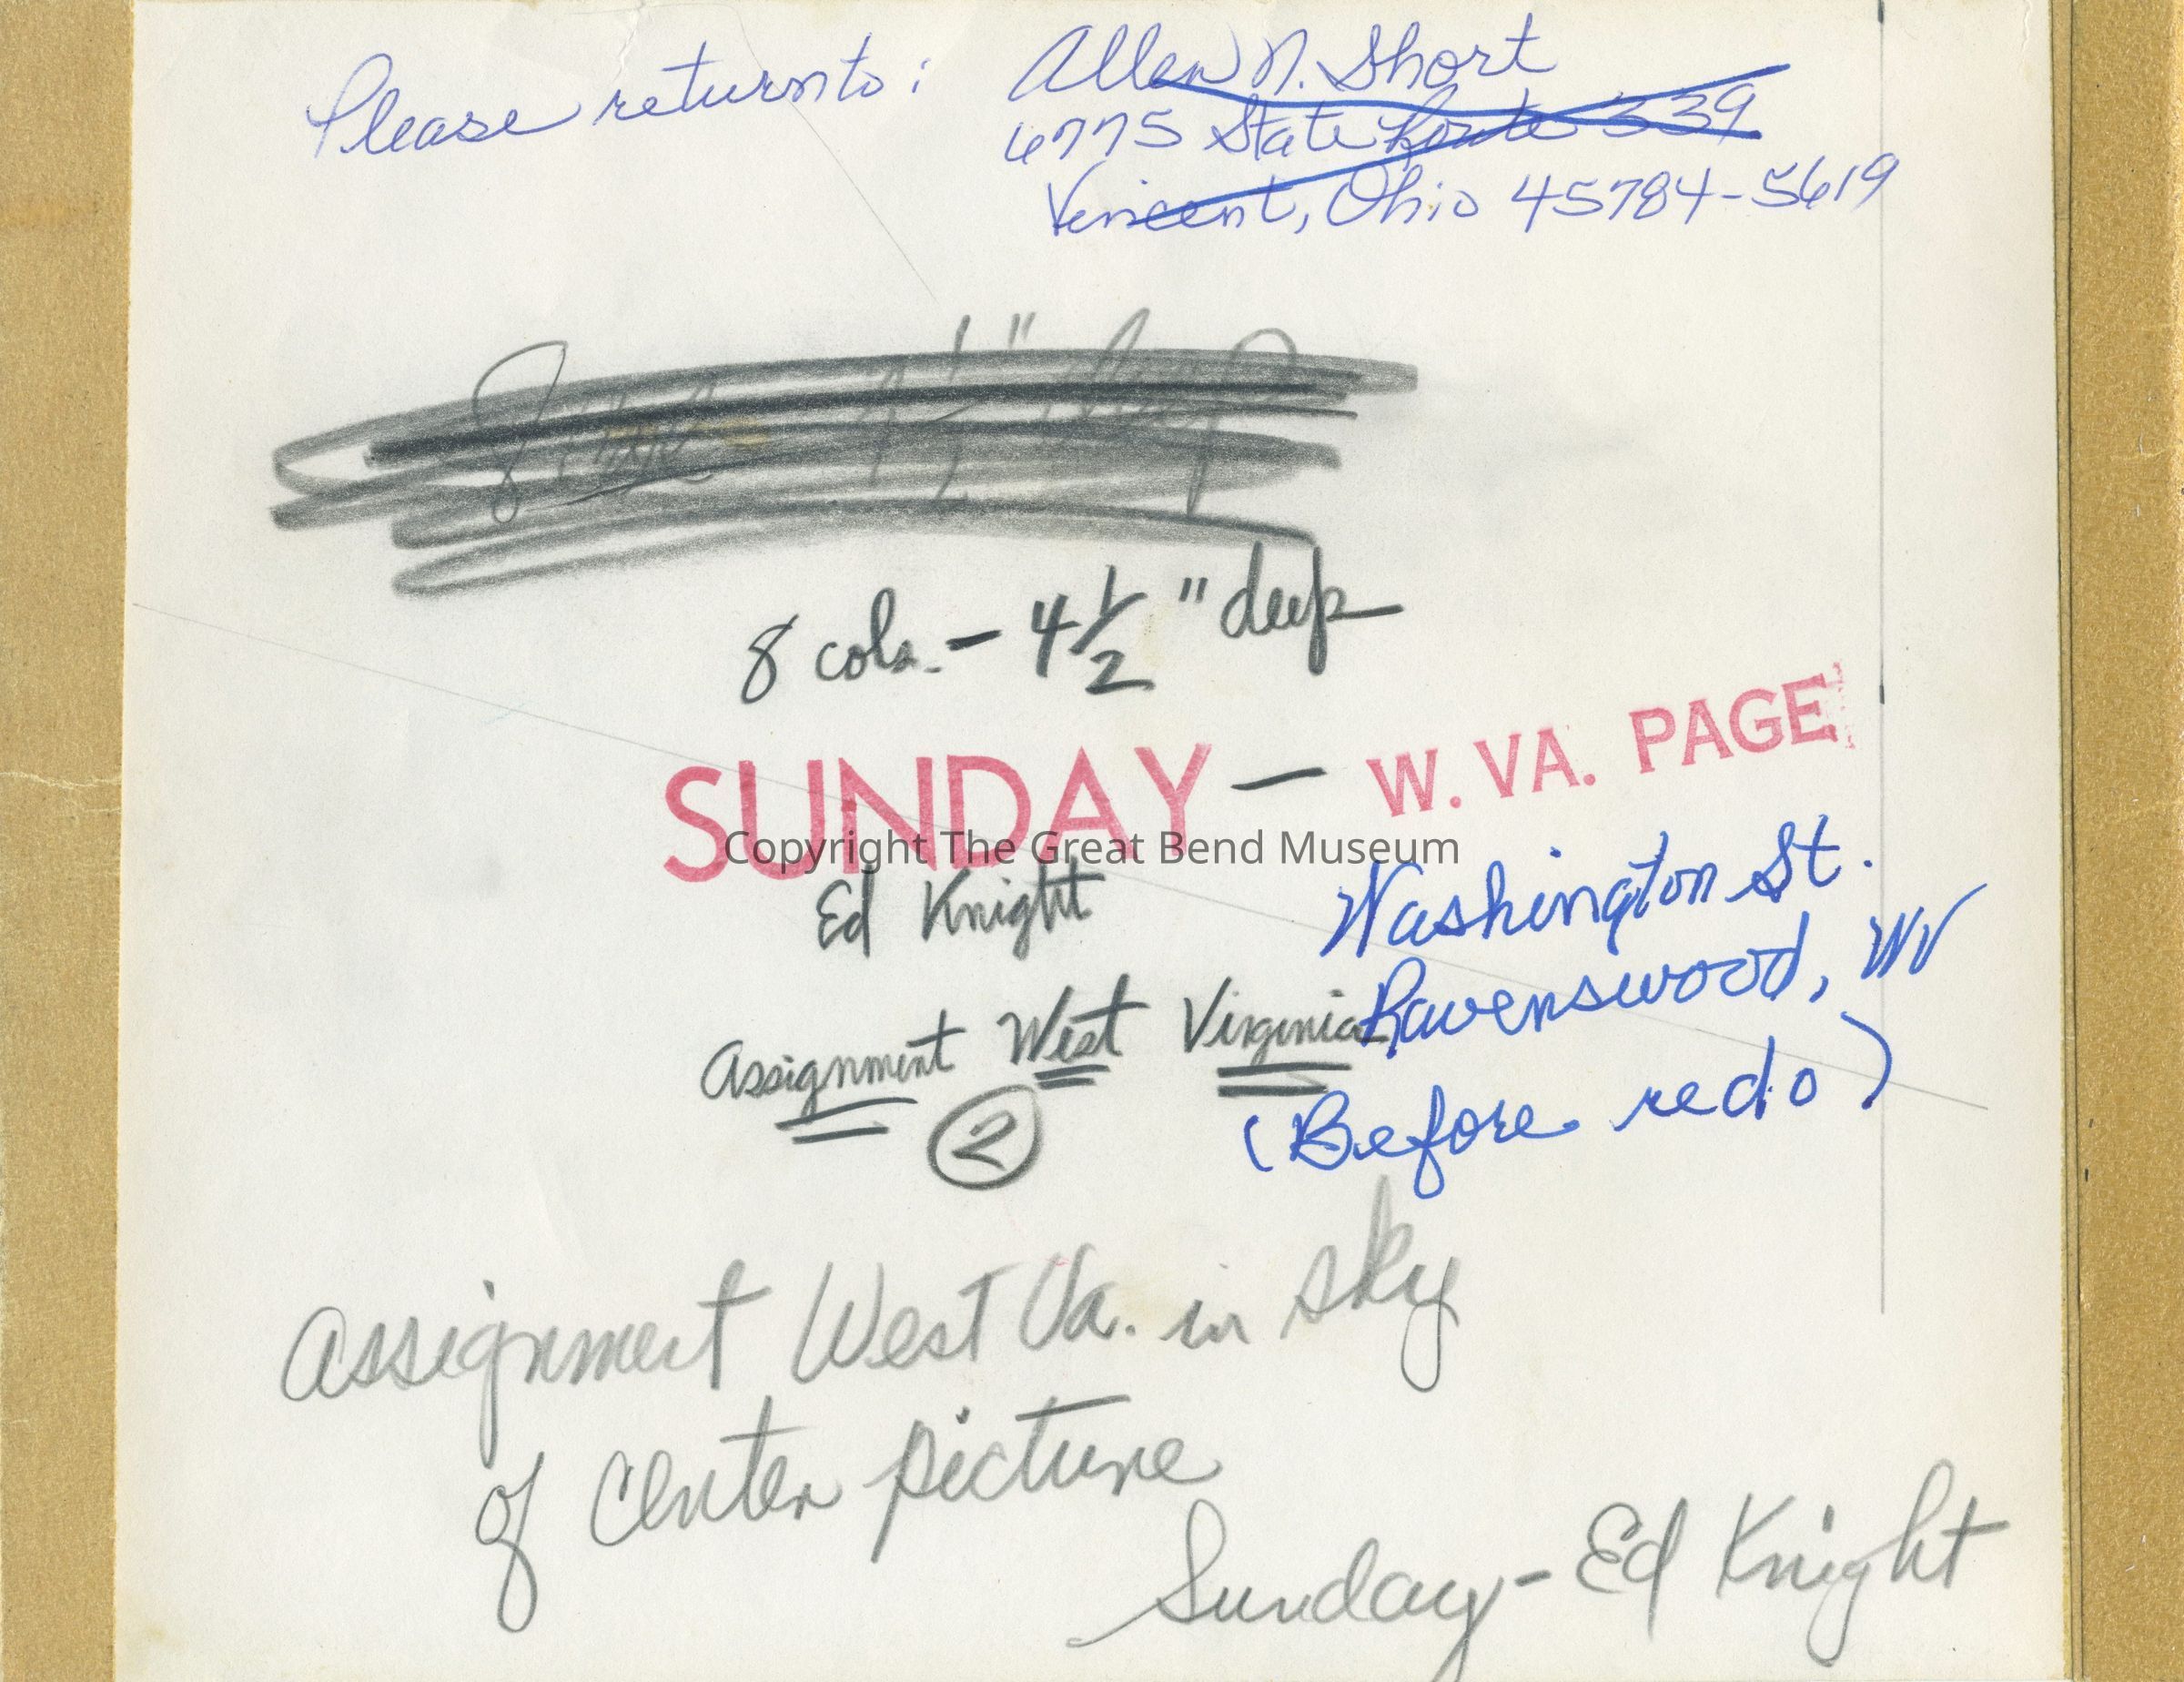 Please return to: Allen N. Short
6775 State Route 339
Vincent, Ohio 45784-5619
8 cols. - 4 1/2" deep
SUNDAY - W. VA. PAGE
Copyright The Great Bend Museum
Ed Knight
Washington St.
Ravenswood, WV
(Before redo)
Assignment West Virginia
2
Assignment West Va. in sky
of center picture
Sunday - Ed Knight